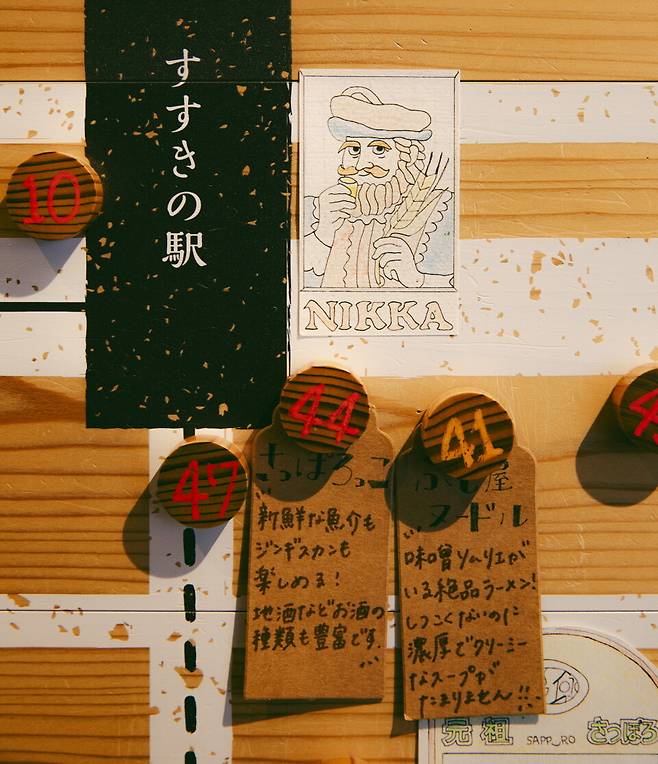 すすきの駅
10
NIKKA
44
41
47
さっぽろっこ
新鮮な魚介も
ジンギスカンも
楽しめる!
地酒などお酒の
種類も豊富です.
屋
ヌードル
味噌ソムリエが
いる絶品ラーメン!
しつこくないのに
濃厚でクリーミー
なスープが
たまりません!!
元祖 SAPP_RO さっぽろ